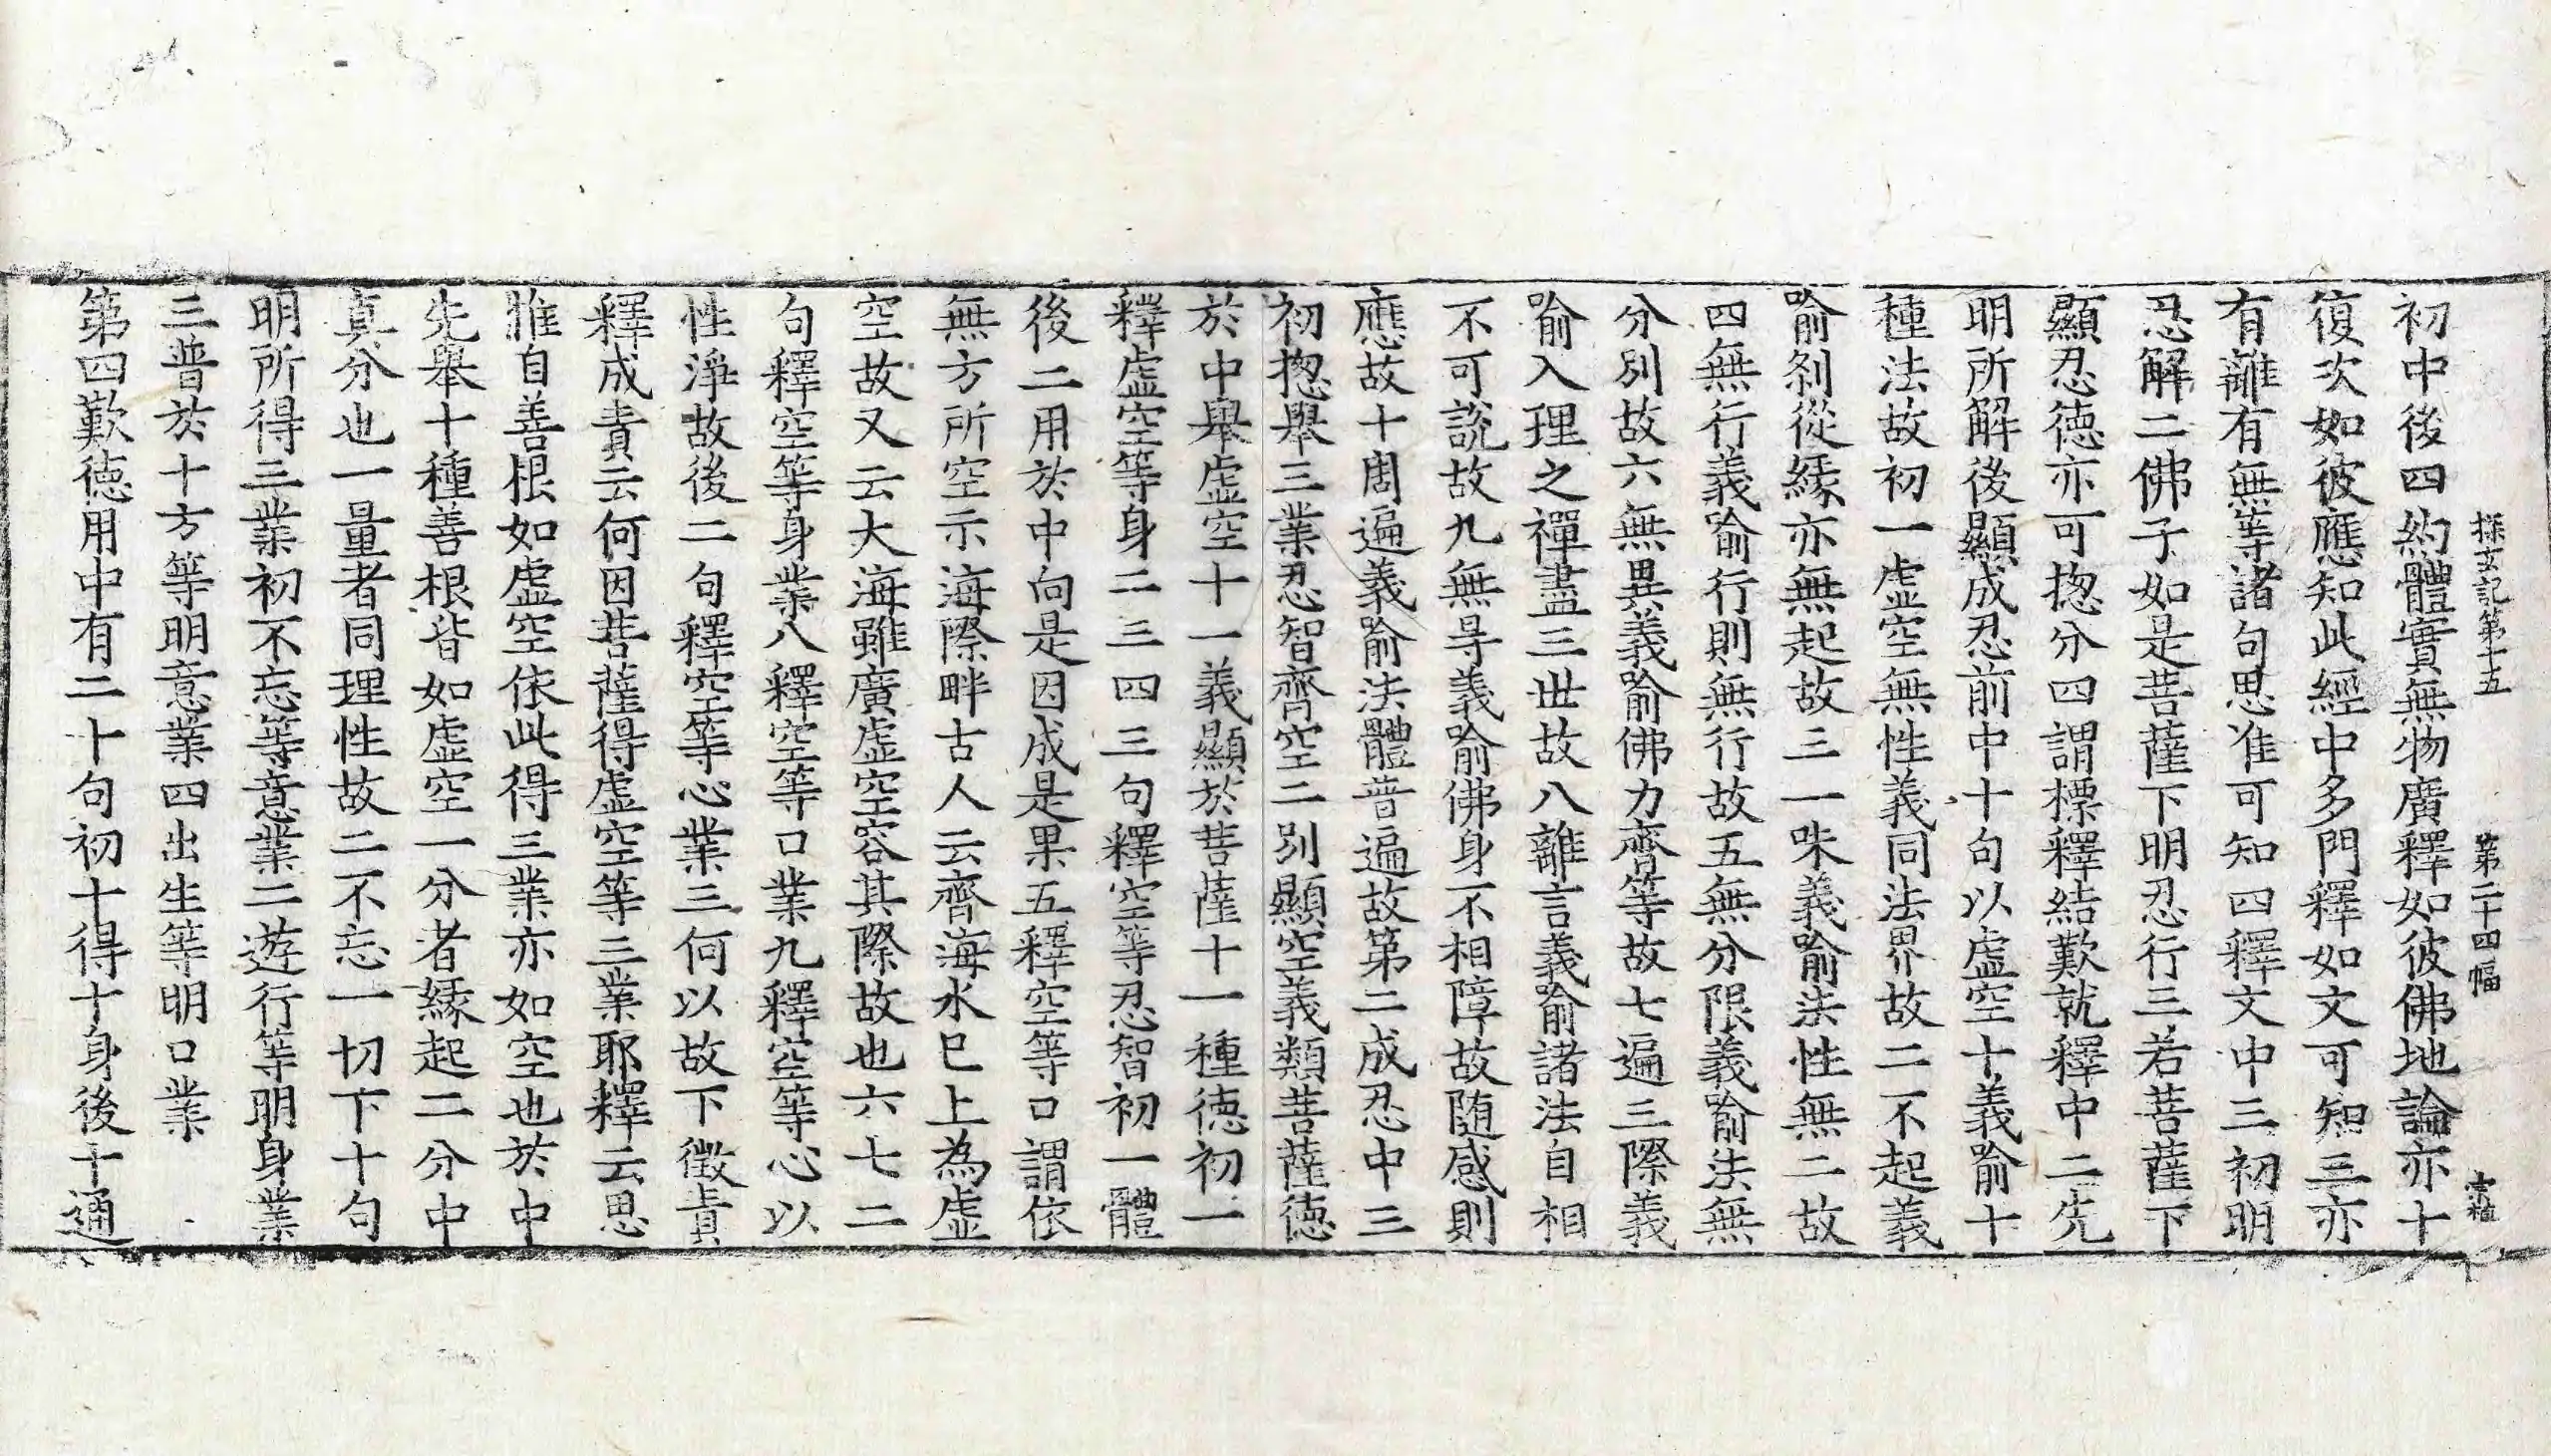 探玄記第十五 第二十四幅
初中後四約體實無物廣釋如彼佛地論亦十
復次如彼應知此經中多門釋如文可知三亦
有離有無等諸句思准可知四釋文中三初明
忍解二佛子如是菩薩下明忍行三若菩薩下
顯忍德亦可捴分四謂標釋結歎就釋中二先
明所解後顯成忍前中十句以虛空十義喻十
種法故初一虛空無性義同法界故二不起義
喻剎從緣亦無起故三一味義喻法性無二故
四無行義喻行則無行故五無分限義喻法無
分別故六無異義喻佛力齊等故七遍三際義
喻入理之禪盡三世故八離言義喻諸法自相
不可說故九無㝵義喻佛身不相障故随感則
應故十周遍義喻法體普遍故第二成忍中三
初捴舉三業忍智齊空二別顯空義類菩薩德
於中舉虛空十一義顯於菩薩十一種德初一
釋虛空等身二三四三句釋空等忍智初一體
後二用於中向是因成是果五釋空等口謂依
無方所空示海際畔古人云齊海水巳上為虛
空故又云大海雖廣虛空容其際故也六七二
句釋空等身業八釋空等口業九釋空等心以
性淨故後二句釋空等心業三何以故下徵責
釋成責云何因菩薩得虛空等三業耶釋云思
惟自善根如虛空依此得三業亦如空也於中
先舉十種善根皆如虛空一分者緣起二分中
真分也一量者同理性故二不忘一切下十句
明所得三業初不忘等意業二遊行等明身業
三普於十方等明意業四出生等明口業
第四歎德用中有二十句初十得十身後十通